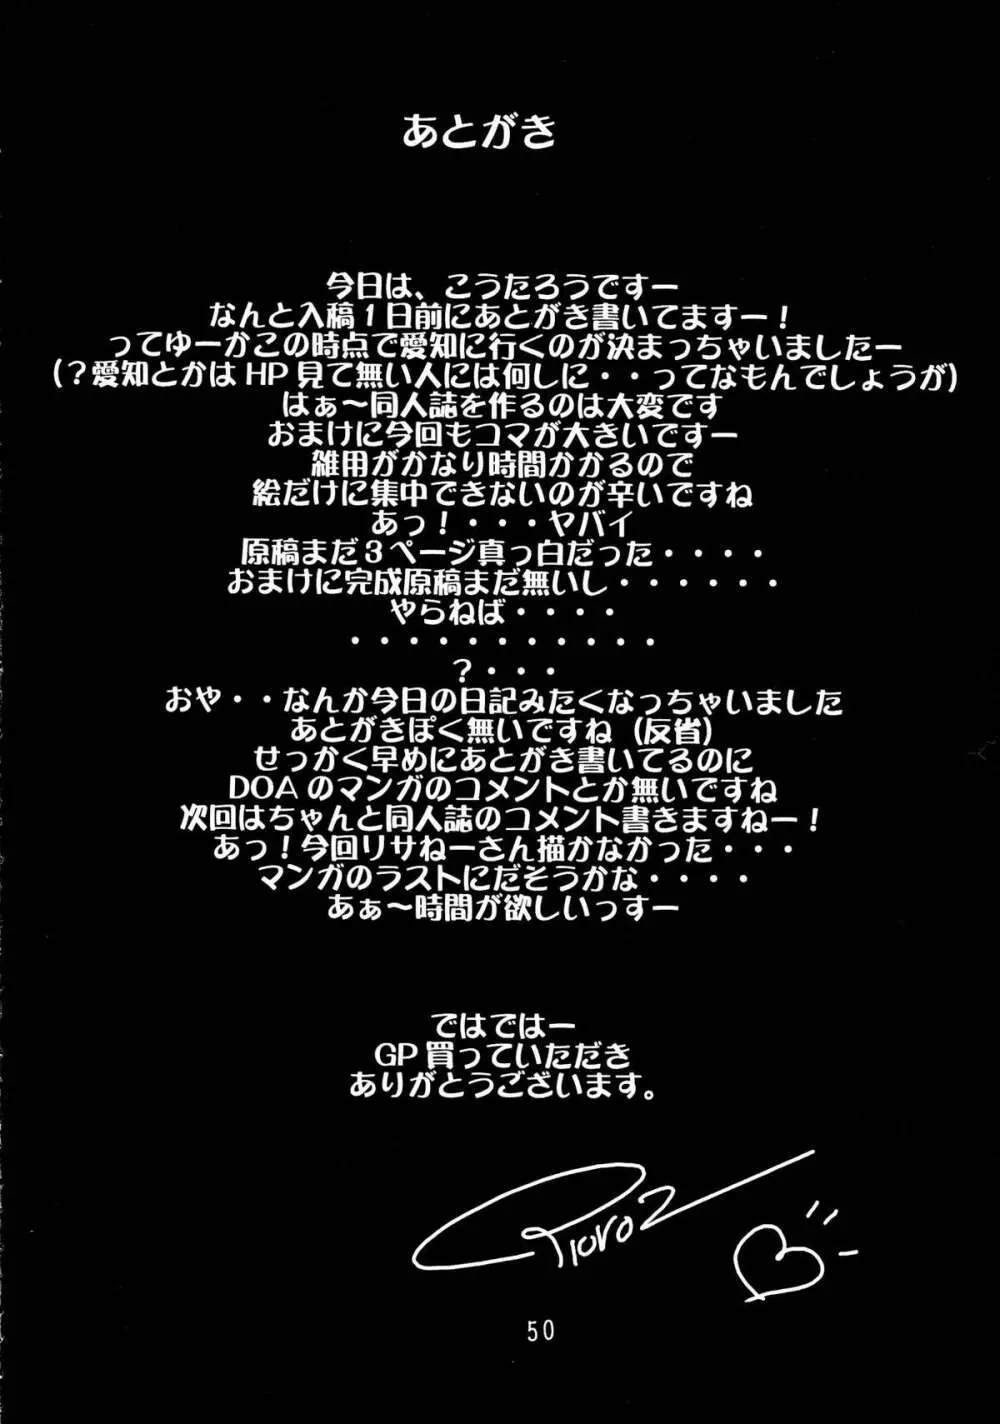 あとがき
今日は、こうたろうですー
なんと入稿１日前にあとがき書いてますー！
ってゆーかこの時点で愛知に行くのが決まっちゃいましたー
(？愛知とかはHP見て無い人には何しに・・ってなもんでしょうが)
はぁ～同人誌を作るのは大変です
おまけに今回もコマが大きいですー
雑用がかなり時間かかるので
絵だけに集中できないのが辛いですね
あっ！・・・ヤバイ
原稿まだ３ページ真っ白だった・・・・
おまけに完成原稿まだ無いし・・・・・・
やらねば・・・・
・・・・・・・・・・・
？・・・
おや・・なんか今日の日記みたくなっちゃいました
あとがきぽく無いですね（反省）
せっかく早めにあとがき書いてるのに
DOAのマンガのコメントとか無いですね
次回はちゃんと同人誌のコメント書きますねー！
あっ！今回リサねーさん描かなかった・・・
マンガのラストにだそうかな・・・・
あぁ～時間が欲しいっすー
ではではー
GP買っていただき
ありがとうございます。
50